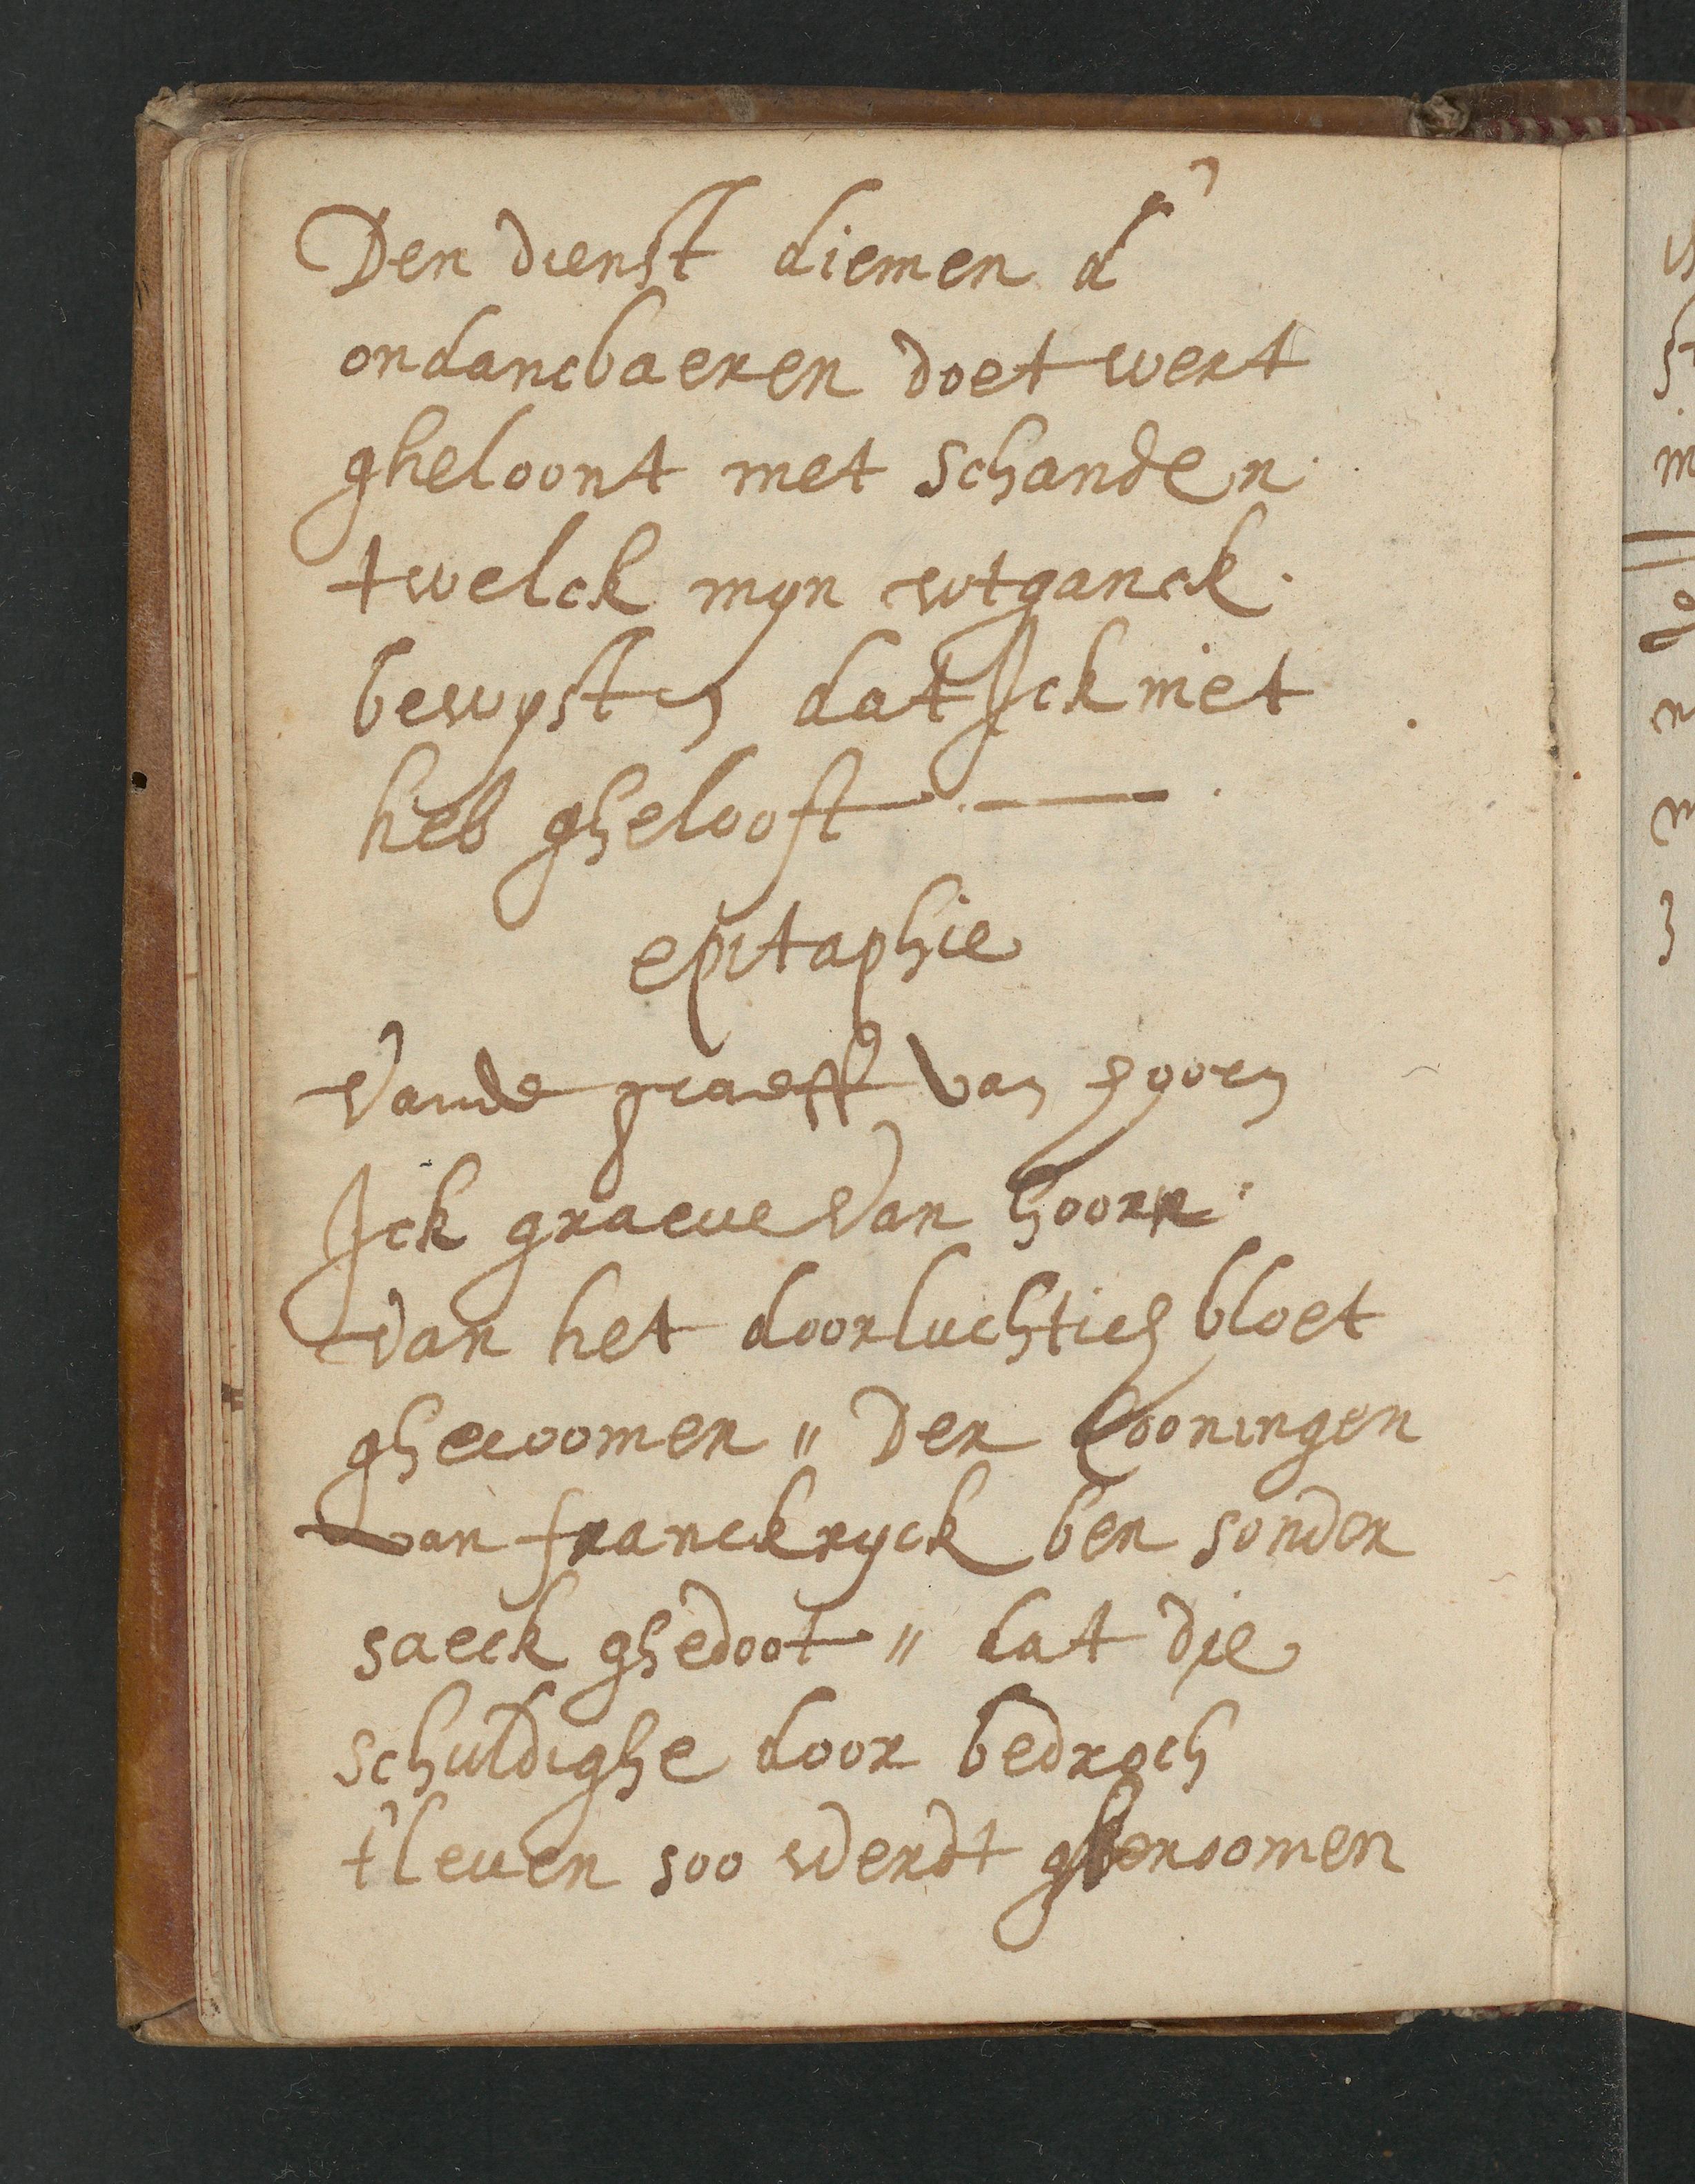 Den dienst diemen d'
ondancbaeren doet wert
gheloont met schanden.
twelck myn wtganck.
bewyst en dat Ick niet
heb ghelooft —.
epitaphie
Vande graeff van hoorn
Ick graeve van hoorn.
van het doorluchtich bloet
ghecoomen „ Der Cooningen
van franckryck ben sonder
saeck ghedoot „ dat die
schuldighe door bedroch
t'leuen soo werdt ghenoomen